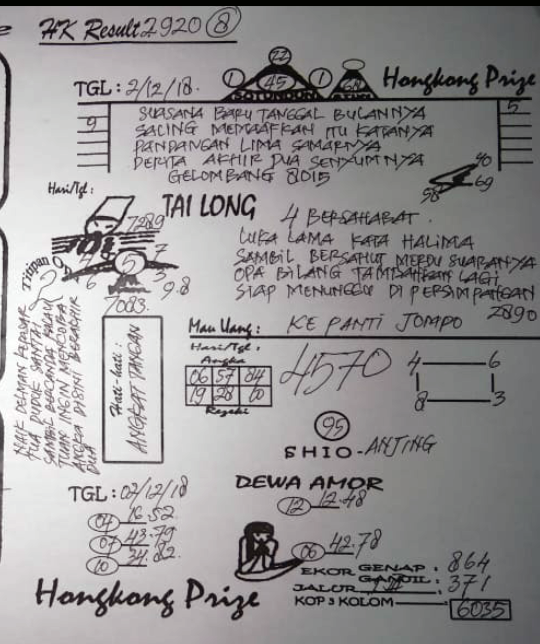 HK Result 2920 8
22
1 45 1
SOTUNDUNG
TGL : 2/12/18.
Hongkong Prize
9
5
SUASANA BARU TANGGAL BULANNYA
SALING MEMAAFKAN ITU KATANYA
PANDANGAN LIMA SAMARNYA
DERITA AKHIR DUA SENYUMNYA
GELOMBANG 8015
40
69
58
Hari/Tgl :
TAI LONG
7289
Titipan
5
7
3
6
9.8
7083.
4 BERSAHABAT.
LUKA LAMA KATA HALIMA
SAMBIL BERSAHUT MERDU SUARANYA
OPA BILANG TAMBAHKAN LAGI
SIAP MENUNGGU DI PERSIMPANGAN
2890
NAIK DELMAN KEPASAR
DUA DUDUK SANTAI
SAMBIL BERCANDA
TUAN INGIN MENCOBA
ANGKA DISINI BERAKHIR
DUA
Hati-hati :
ANGKAT TANGAN
Mau Uang : KE PANTI JOMPO
Hari/Tgl :
Angka
06 57 84
19 28 60
Rezeki
4570
4 6
8 3
95
SHIO - ANJING
TGL : 02/12/18
04 16.52
07 43.79
10 34.82
DEWA AMOR
12 12.48
06 42.78
EKOR GENAP : 864
GANJIL : 371
JALUR
KOP 3 KOLOM 6035
Hongkong Prize